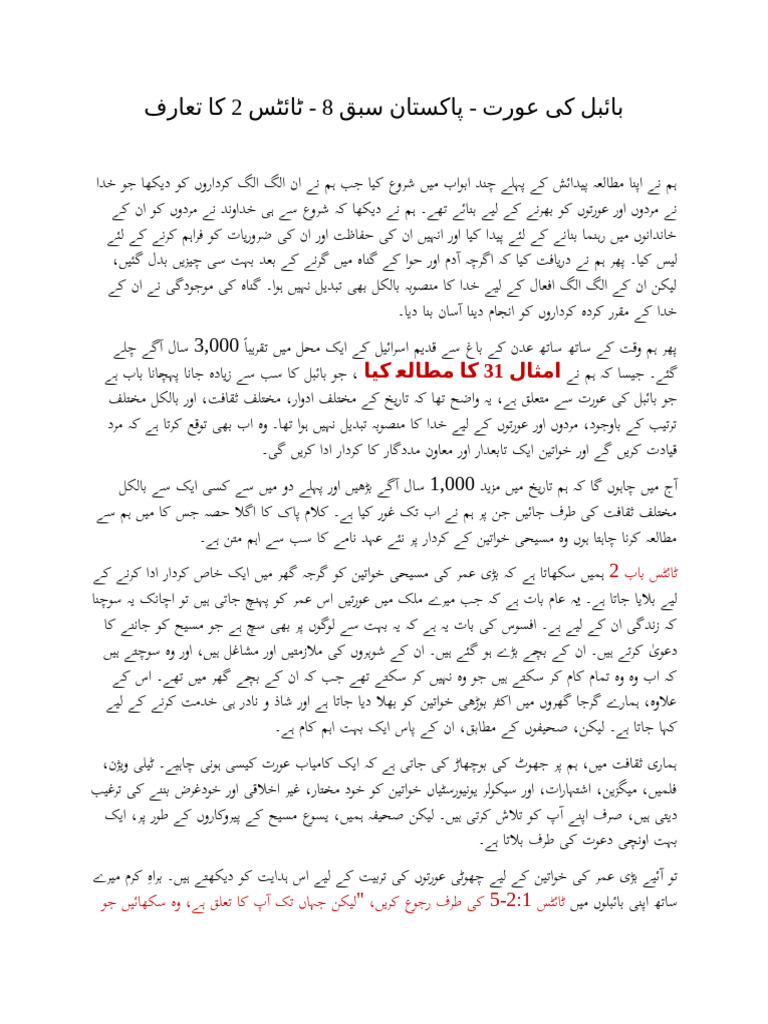 بائبل کی عورت - پاکستان سبق 8 - ٹائٹس 2 کا تعارف
ہم نے اپنا مطالعہ پیدائش کے پہلے چند ابواب میں شروع کیا جب ہم نے ان الگ الگ کرداروں کو دیکھا جو خدا
نے مردوں اور عورتوں کو بھرنے کے لیے بنائے تھے۔ ہم نے دیکھا کہ شروع سے ہی خداوند نے مردوں کو ان کے
خاندانوں میں رہنما بنانے کے لئے پیدا کیا اور انہیں ان کی حفاظت اور ان کی ضروریات کو فراہم کرنے کے لئے
لیس کیا۔ پھر ہم نے دریافت کیا کہ اگرچہ آدم اور حوا کے گناہ میں گرنے کے بعد بہت سی چیزیں بدل گئیں،
لیکن ان کے الگ الگ افعال کے لیے خدا کا منصوبہ بالکل بھی تبدیل نہیں ہوا۔ گناہ کی موجودگی نے ان کے
خدا کے مقرر کردہ کرداروں کو انجام دینا آسان بنا دیا۔
پھر ہم وقت کے ساتھ ساتھ عدن کے باغ سے قدیم اسرائیل کے ایک محل میں تقریباً 3,000 سال آگے چلے
گئے۔ جیسا کہ ہم نے امثال 31 کا مطالعہ کیا ، جو بائبل کا سب سے زیادہ جانا پہچانا باب ہے
جو بائبل کی عورت سے متعلق ہے، یہ واضح تھا کہ تاریخ کے مختلف ادوار، مختلف ثقافت، اور بالکل مختلف
ترتیب کے باوجود، مردوں اور عورتوں کے لیے خدا کا منصوبہ تبدیل نہیں ہوا تھا۔ وہ اب بھی توقع کرتا ہے کہ مرد
قیادت کریں گے اور خواتین ایک تابعدار اور معاون مددگار کا کردار ادا کریں گی۔
آج میں چاہوں گا کہ ہم تاریخ میں مزید 1,000 سال آگے بڑھیں اور پہلے دو میں سے کسی ایک سے بالکل
مختلف ثقافت کی طرف جائیں جن پر ہم نے اب تک غور کیا ہے۔ کلام پاک کا اگلا حصہ جس کا میں ہم سے
مطالعہ کرنا چاہتا ہوں وہ مسیحی خواتین کے کردار پر نئے عہد نامے کا سب سے اہم متن ہے۔
ٹائٹس باب 2 ہمیں سکھاتا ہے کہ بڑی عمر کی مسیحی خواتین کو گرجہ گھر میں ایک خاص کردار ادا کرنے کے
لیے بلایا جاتا ہے۔ یہ عام بات ہے کہ جب میرے ملک میں عورتیں اس عمر کو پہنچ جاتی ہیں تو اچانک یہ سوچنا
کہ زندگی ان کے لیے ہے۔ افسوس کی بات یہ ہے کہ یہ بہت سے لوگوں پر بھی سچ ہے جو مسیح کو جاننے کا
دعویٰ کرتے ہیں۔ ان کے بچے بڑے ہو گئے ہیں۔ ان کے شوہروں کی ملازمتیں اور مشاغل ہیں، اور وہ سوچتے ہیں
کہ اب وہ وہ تمام کام کر سکتے ہیں جو وہ نہیں کر سکتے تھے جب کہ ان کے بچے گھر میں تھے۔ اس کے
علاوہ، ہمارے گرجا گھروں میں اکثر بوڑھی خواتین کو بھلا دیا جاتا ہے اور شاذ و نادر ہی خدمت کرنے کے لیے
کہا جاتا ہے۔ لیکن، صحیفوں کے مطابق، ان کے پاس ایک بہت اہم کام ہے۔
ہماری ثقافت میں، ہم پر جھوٹ کی بوچھاڑ کی جاتی ہے کہ ایک کامیاب عورت کیسی ہونی چاہیے۔ ٹیلی ویژن،
فلمیں، میگزین، اشتہارات، اور سیکولر یونیورسٹیاں خواتین کو خود مختار، غیر اخلاقی اور خودغرض بننے کی ترغیب
دیتی ہیں، صرف اپنے آپ کو تلاش کرتی ہیں۔ لیکن صحیفہ ہمیں، یسوع مسیح کے پیروکاروں کے طور پر، ایک
بہت اونچی دعوت کی طرف بلاتا ہے۔
تو آئیے بڑی عمر کی خواتین کے لیے چھوٹی عورتوں کی تربیت کے لیے اس ہدایت کو دیکھتے ہیں۔ براہِ کرم میرے
ساتھ اپنی بائبلوں میں ٹائٹس 2:1-5 کی طرف رجوع کریں، "لیکن جہاں تک آپ کا تعلق ہے، وہ سکھائیں جو